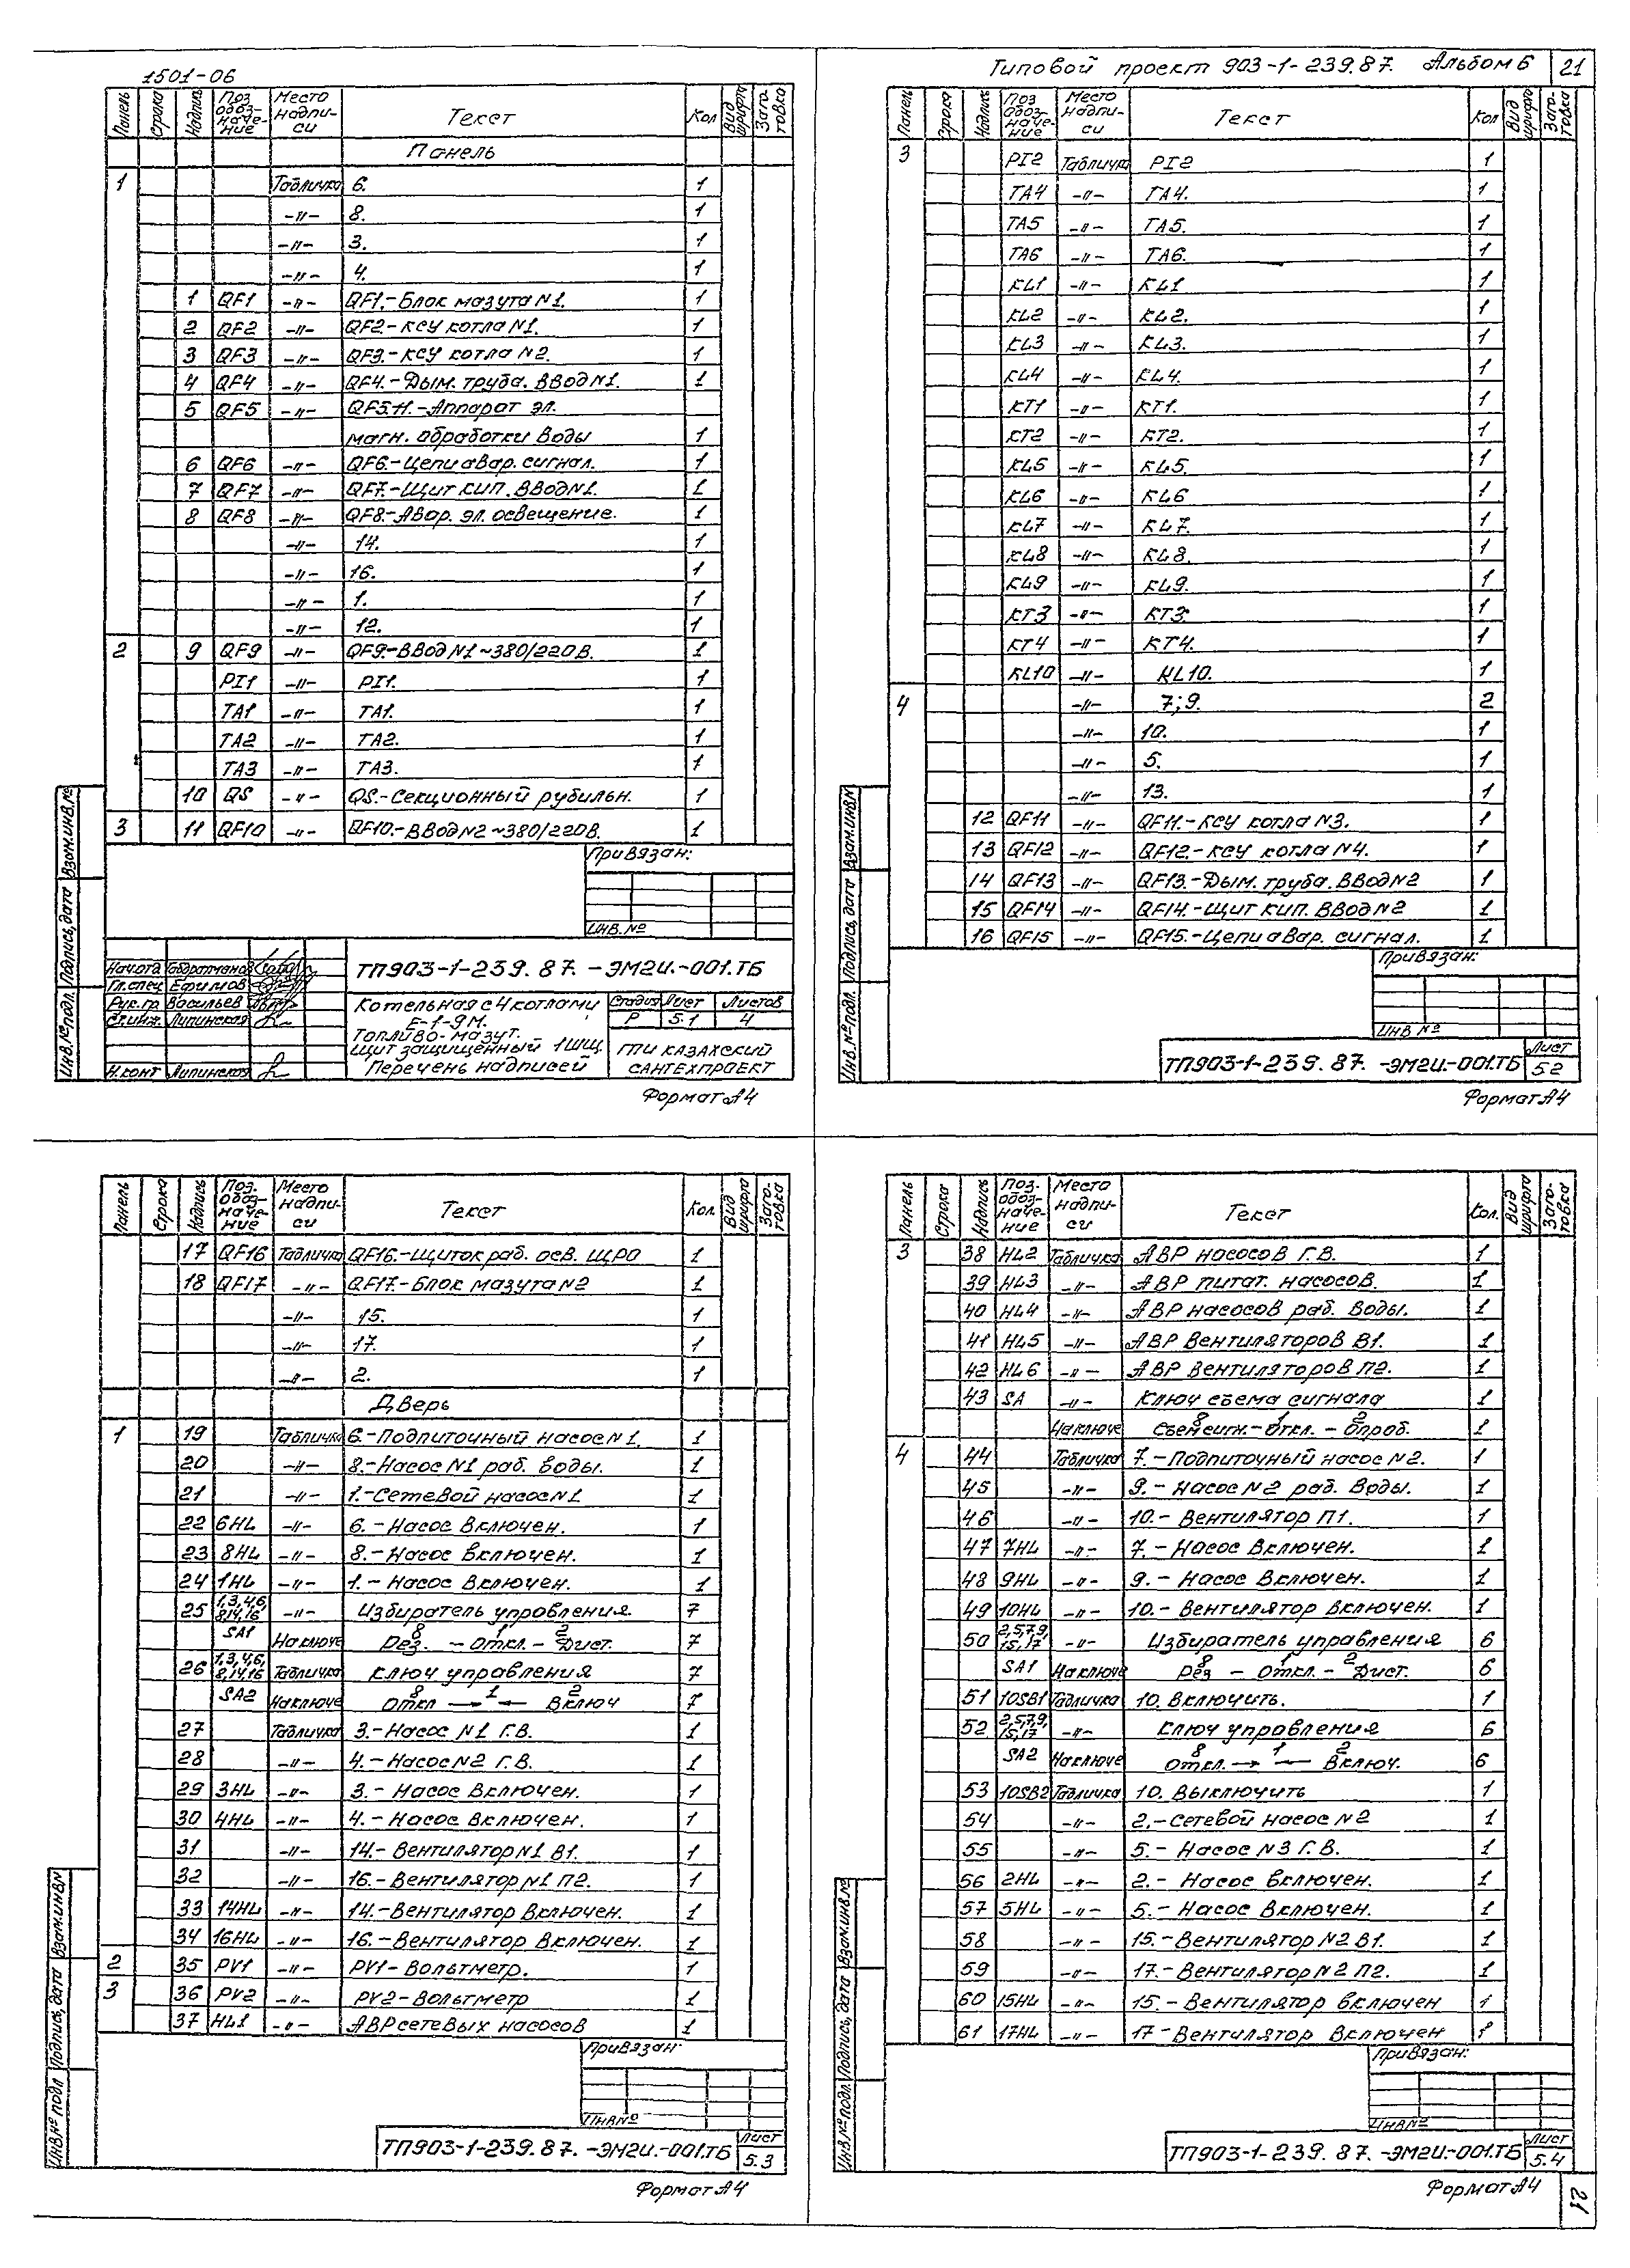 1501-06
Типовой проект 903-1-239.87. Альбом 6 21
Панель Строка Надпись Поз. обозначение Место надписи Текст Кол Вид шрифта Заготовка
Панель
1 Табличка 6. 1
-"- 8. 1
-"- 3. 1
-"- 4. 1
1 QF1 -"- QF1.-Блок мазута N1. 1
2 QF2 -"- QF2-КСУ котла N1. 1
3 QF3 -"- QF3.-КСУ котла N2. 1
4 QF4 -"- QF4.-Дым. труба. Ввод N1. 1
5 QF5 -"- QF5.11.-Аппарат эл.
магн. обработки воды 1
6 QF6 -"- QF6.-Цепи авар. сигнал. 1
7 QF7 -"- QF7.-Щит КИП. Ввод N1. 1
8 QF8 -"- QF8.-Авар. эл. освещение. 1
-"- 14. 1
-"- 16. 1
-"- 1. 1
-"- 12. 1
2 9 QF9 -"- QF9.-Ввод N1 ~380/220В. 1
PI1 -"- PI1. 1
TA1 -"- TA1. 1
TA2 -"- TA2. 1
TA3 -"- TA3. 1
10 QS -"- QS.-Секционный рубильн. 1
3 11 QF10 -"- QF10.-Ввод N2 ~380/220В. 1
Привязан:
Инв. №
Взам. инв. №
Подпись, дата
Инв. № подл.
Нач. отд
Гл. спец Ефимов
Рук. гр. Васильев
Ст. инж. Липинская
Н. конт Липинская
ТП903-1-239.87.-ЭМ2И.-001.ТБ
Котельная с 4 котлами
Е-1-9М.
Топливо-мазут.
Щит защищенный 1ШЩ.
Перечень надписей
Стадия Лист Листов
Р 5.1 4
ГПИ КАЗАХСКИЙ
САНТЕХПРОЕКТ
Формат А4
Панель Строка Надпись Поз обозначение Место надписи Текст Кол Вид шрифта Заготовка
3 PI2 Табличка PI2 1
TA4 -"- TA4. 1
TA5 -"- TA5. 1
TA6 -"- TA6. 1
KL1 -"- KL1 1
KL2 -"- KL2. 1
KL3 -"- KL3. 1
KL4 -"- KL4. 1
KT1 -"- KT1. 1
KT2 -"- KT2. 1
KL5 -"- KL5. 1
KL6 -"- KL6 1
KL7 -"- KL7. 1
KL8 -"- KL8. 1
KL9 -"- KL9. 1
KT3 -"- KT3. 1
KT4 -"- KT4. 1
KL10 -"- KL10. 1
4 -"- 7; 9. 2
-"- 10. 1
-"- 5. 1
-"- 13. 1
12 QF11 -"- QF11.-КСУ котла N3. 1
13 QF12 -"- QF12.-КСУ котла N4. 1
14 QF13 -"- QF13.-Дым. труба. Ввод N2 1
15 QF14 -"- QF14.-Щит КИП. Ввод N2 1
16 QF15 -"- QF15.-Цепи авар. сигнал. 1
Привязан:
Инв №
Взам. инв N
Подпись, дата
Инв. № подл.
ТП903-1-239.87.-ЭМ2И.-001.ТБ
Лист
5.2
Формат А4
Панель Строка Надпись Поз. обозначение Место надписи Текст Кол. Вид шрифта Заготовка
17 QF16 Табличка QF16.-Щиток раб. осв. ЩРО 1
18 QF17 -"- QF17.-Блок мазута N2 1
-"- 15. 1
-"- 17. 1
-"- 2. 1
Дверь
1 19 Табличка 6.-Подпиточный насос N1. 1
20 -"- 8.-Насос N1 раб. воды. 1
21 -"- 1.-Сетевой насос N1 1
22 6HL -"- 6.-Насос включен. 1
23 8HL -"- 8.-Насос включен. 1
24 1HL -"- 1.-Насос включен. 1
25 1,3,4,6 8,14,16 -"- Избиратель управления 7
SA1 На ключе 8 1 2 Рез. - Откл. - Дист. 7
26 1,3,4,6, 8,14,16 Табличка Ключ управления 7
SA2 На ключе 8 1 2 Откл → ← Включ 7
27 Табличка 3.-Насос N1 Г.В. 1
28 -"- 4.-Насос N2 Г.В. 1
29 3HL -"- 3.-Насос включен. 1
30 4HL -"- 4.-Насос включен. 1
31 -"- 14.-Вентилятор N1 В1. 1
32 -"- 16.-Вентилятор N1 П2. 1
33 14HL -"- 14.-Вентилятор включен. 1
34 16HL -"- 16.-Вентилятор включен. 1
2 35 PV1 -"- PV1-Вольтметр. 1
3 36 PV2 -"- PV2-Вольтметр 1
37 HL1 -"- АВР сетевых насосов 1
Привязан:
Инв №
Взам. инв N
Подпись, дата
Инв. № подл
ТП903-1-239.87.-ЭМ2И.-001.ТБ
Лист
5.3
Формат А4
Панель Строка Надпись Поз. обозначение Место надписи Текст Кол. Вид шрифта Заготовка
3 38 HL2 Табличка АВР насосов Г.В. 1
39 HL3 -"- АВР питат. насосов. 1
40 HL4 -"- АВР насосов раб. воды. 1
41 HL5 -"- АВР вентиляторов В1. 1
42 HL6 -"- АВР вентиляторов П2. 1
43 SA -"- Ключ съема сигнала 1
На ключе 8 1 2 Съем сигн. - Откл. - Опроб. 1
4 44 Табличка 7.-Подпиточный насос N2. 1
45 -"- 9.-Насос N2 раб. воды. 1
46 -"- 10.-Вентилятор П1. 1
47 7HL -"- 7.-Насос включен. 1
48 9HL -"- 9.-Насос включен. 1
49 10HL -"- 10.-Вентилятор включен. 1
50 2,5,7,9, 15,17 -"- Избиратель управления 6
SA1 На ключе 8 2 Рез - Откл. - Дист. 6
51 10SB1 Табличка 10. Включить. 1
52 2,5,7,9, 15,17 -"- Ключ управления 6
SA2 На ключе 8 1 2 Откл. → ← Включ. 6
53 10SB2 Табличка 10. Выключить 1
54 -"- 2.-Сетевой насос N2 1
55 -"- 5.-Насос N3 Г.В. 1
56 2HL -"- 2.-Насос включен. 1
57 5HL -"- 5.-Насос включен. 1
58 -"- 15.-Вентилятор N2 В1. 1
59 -"- 17.-Вентилятор N2 П2. 1
60 15HL -"- 15.-Вентилятор включен 1
61 17HL -"- 17-Вентилятор включен 1
Привязан:
Инв №
Взам. инв. №
Подпись, дата
Инв. № подл.
ТП903-1-239.87.-ЭМ2И.-001.ТБ
Лист
5.4
Формат А4
21